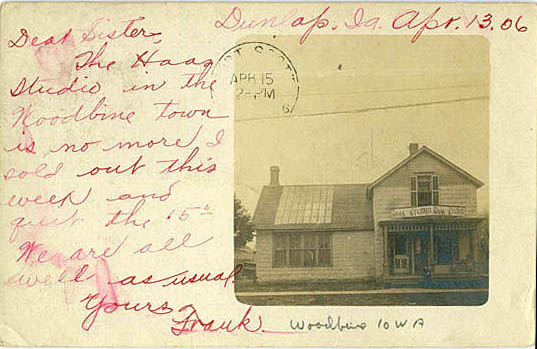 Dunlap, Ia. Apr. 13. 06
Dear Sister,
The Haag
Studio in the
Woodbine town
is no more I
sold out this
week and
quit the "5"
We are all
well as usual
Yours
Frank.
APR 15
6
STUDIO
Woodbine IOWA